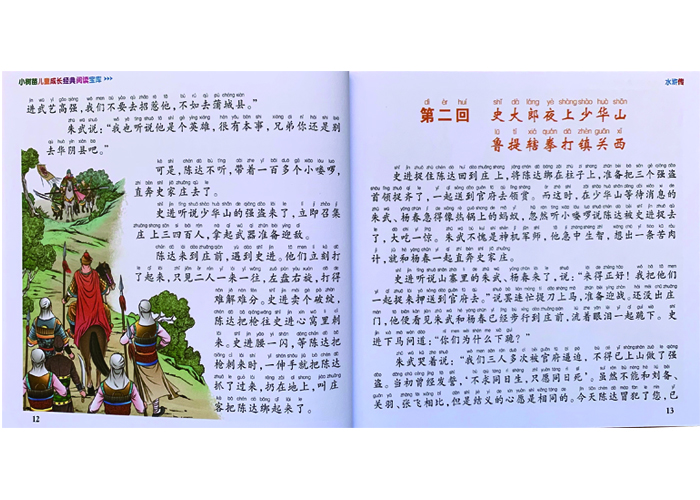 小树苗儿童成长经典阅读宝库>>>
进武艺高强，我们不要去招惹他，不如去蒲城县。”
朱武说：“我也听说他是个英雄，很有本事，兄弟你还是别
去华阴县吧。”
可是，陈达不听，带着一百多个小喽啰，
直奔史家庄去了。
史进听说少华山的强盗来了，立即召集
庄上三四百人，拿起武器准备迎敌。
陈达来到庄前，遇到史进。他们立刻打
了起来，只见二人一来一往，左盘右旋，打得
难解难分。史进卖个破绽，
陈达把枪往史进心窝里刺
来。史进腰一闪，等陈达把
枪刺来时，一伸手就把陈达
抓了过来，扔在地上，叫庄
客把陈达绑起来了。
12
水浒传
第二回 史大郎夜上少华山
鲁提辖拳打镇关西
史进捉住陈达回到庄上，将陈达绑在柱子上，准备把三个强盗
首领捉齐了，一起送到官府去领赏。而这时，在少华山等待消息的
朱武、杨春急得像热锅上的蚂蚁，忽然听小喽啰说陈达被史进捉去
了，大吃一惊。朱武不愧是神机军师，他急中生智，想出一条苦肉
计，就和杨春一起直奔史家庄。
史进听说山寨里的朱武、杨春来了，说：“来得正好！我把他们
一起捉来押送到官府去。”说罢连忙提刀上马，准备迎战。还没出庄
门，他便看见朱武和杨春已徒步行到庄前，流着眼泪一起跪下。史
进下马问道：“你们为什么下跪？”
朱武哭着说：“我们三人多次被官府逼迫，不得已上山做了强
盗。当初曾经发誓，‘不求同日生，只愿同日死’。虽然不能和刘备、
关羽、张飞相比，但是结义的心愿是相同的。今天陈达冒犯了您，已
13